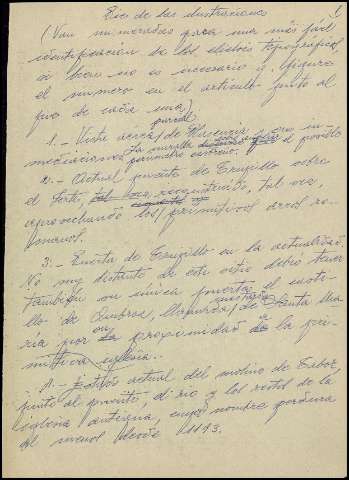 1
Pies de las ilustraciones
(Van numeradas para una más fácil
identificación de los clichés tipográficos,
si bien no es necesario q. figure
el numero en el articulo junto al
pie de cada una)
parcial
1.- Vista aerea de Plasencia y sus in-
mediaciones. La muralla
2.- Actual puente de Trujillo sobre
el Jerte, reconstruido, tal vez,
aprovechando los primitivos arcos ro-
manos.
3.- Puerta de Trujillo en la actualidad
No muy distante de este sitio debió tener
también su única puerta el casti-
llo de Ambroz, llamada de Santa Ma
ria por la proximidad a la pri-
mitiva iglesia.
4.- Estado actual del molino de Tabor
junto al puente, el rio y los restos de la
iglesia antigua, cuyo nombre perdura
al menos desde 1193.